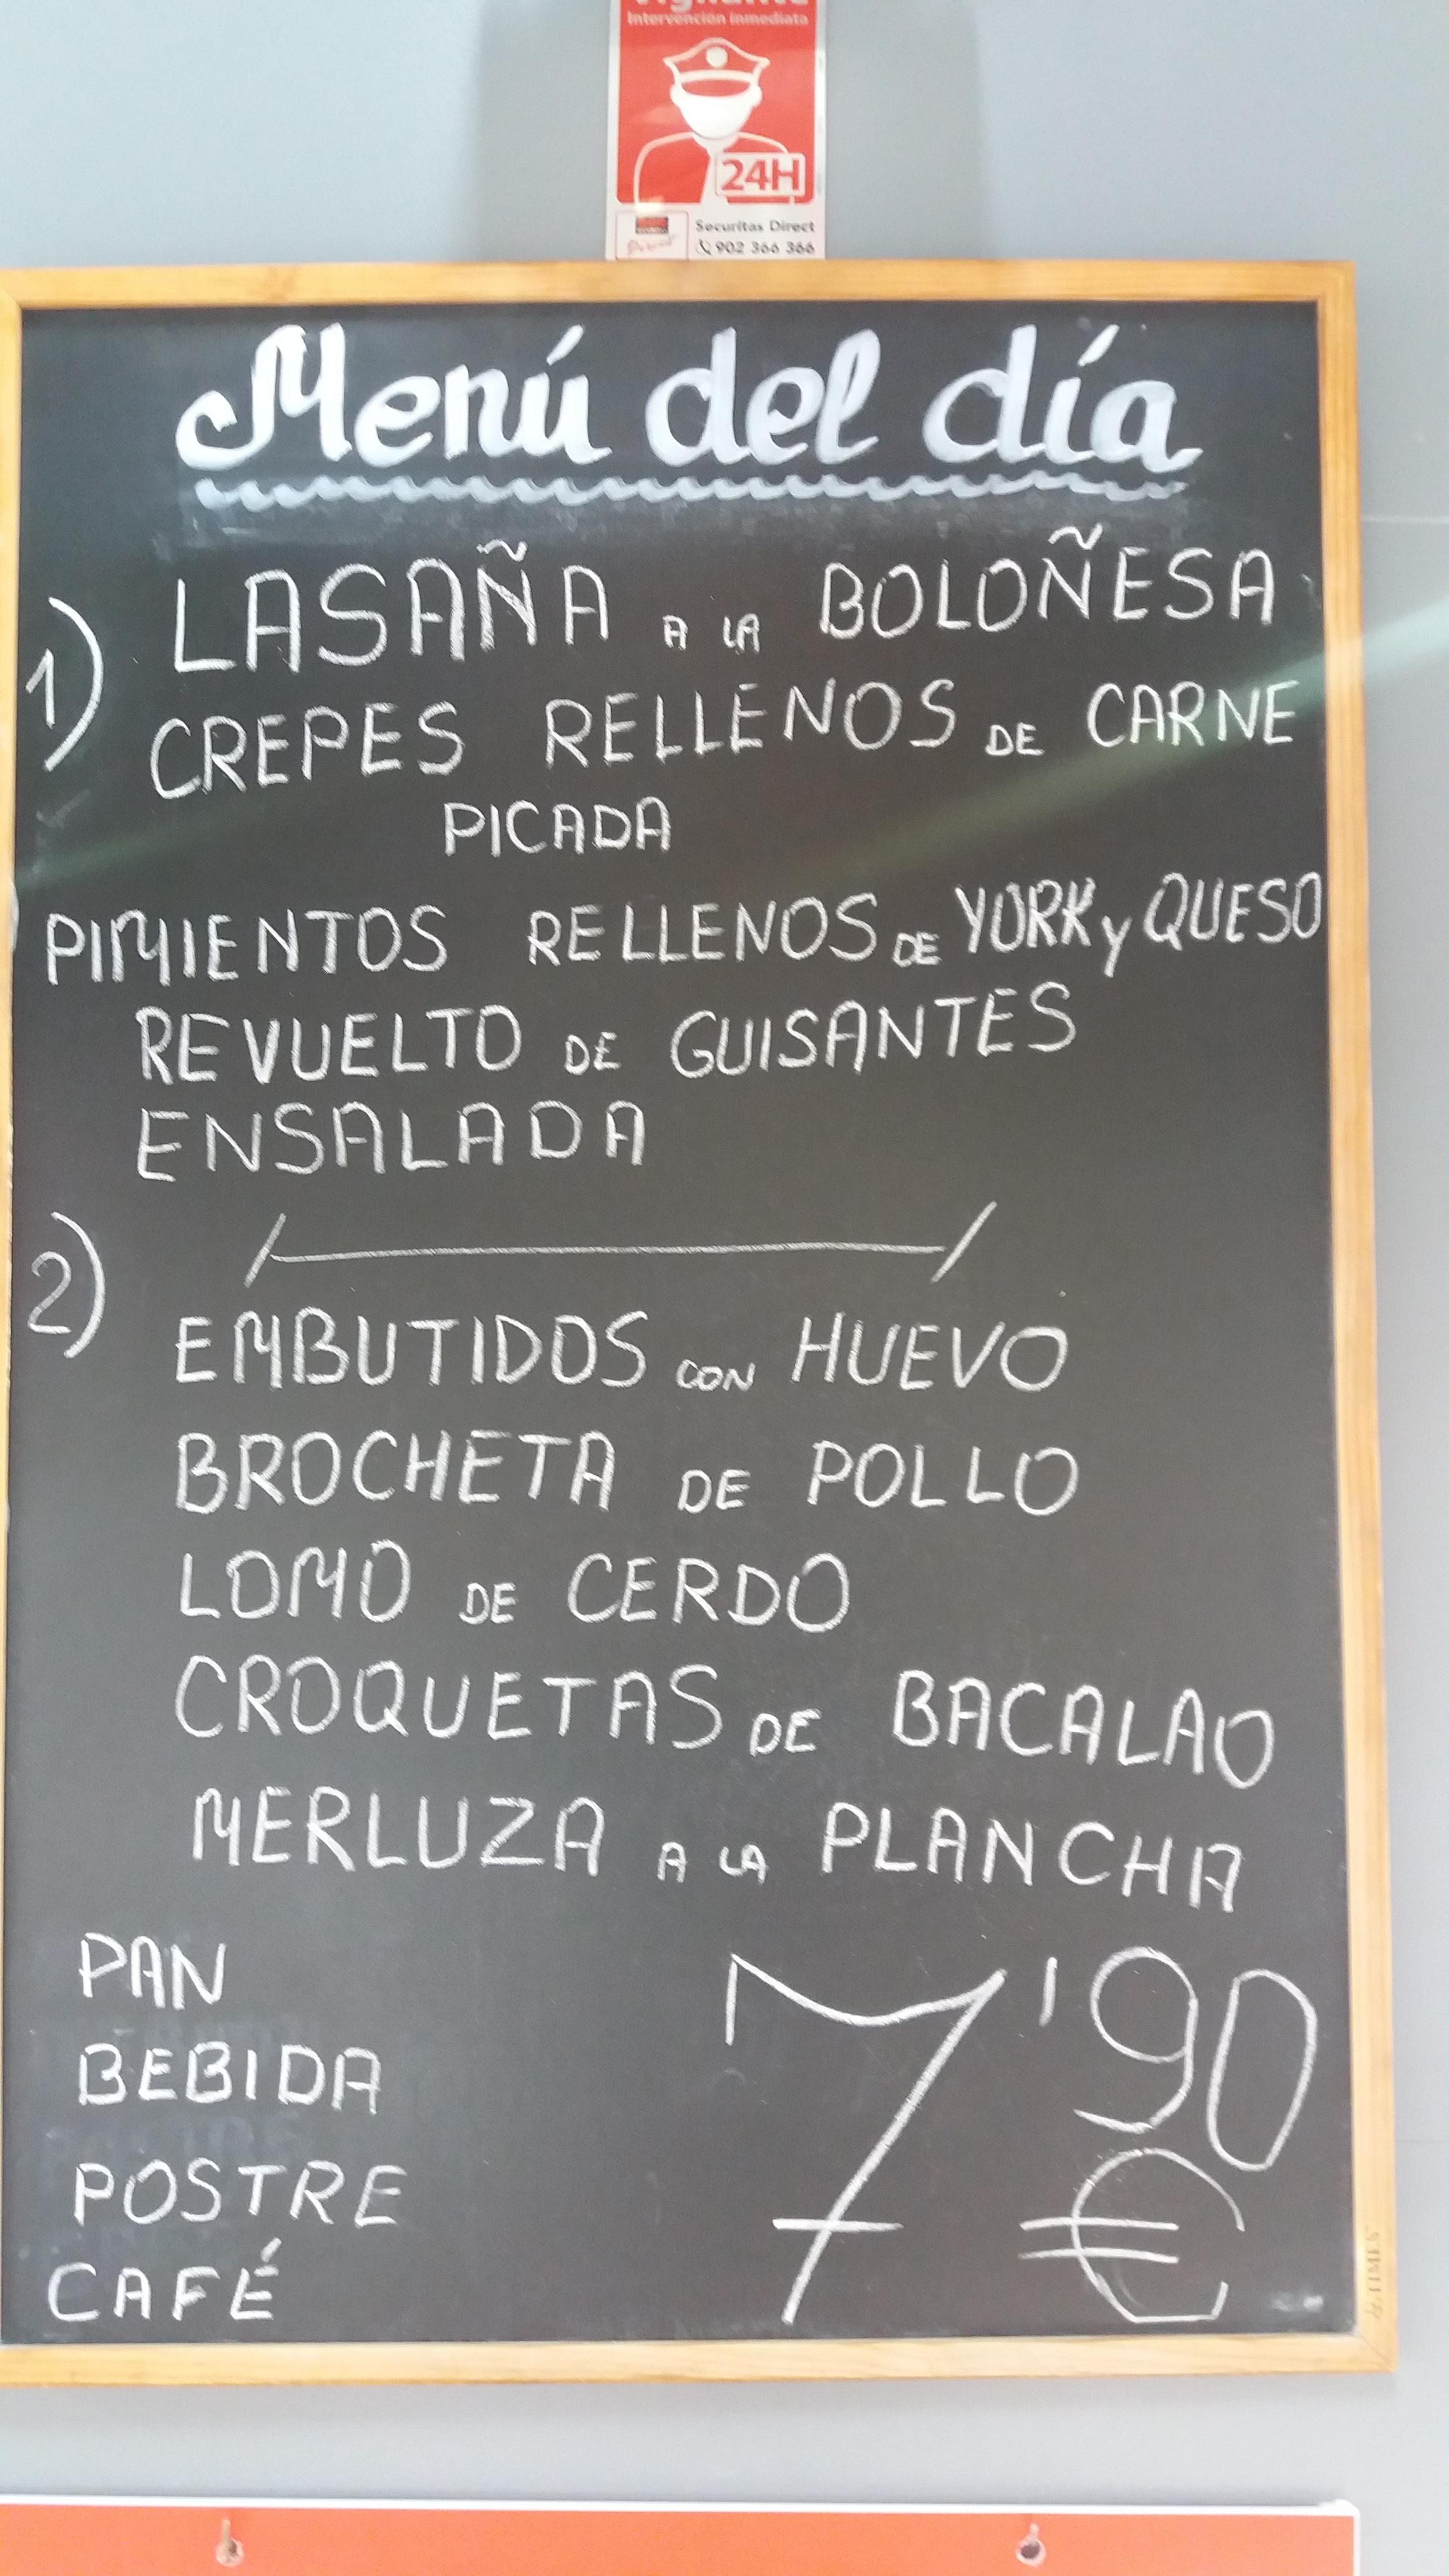 Vigilante
Intervención inmediata
24H
Securitas Direct
902 366 366
Menú del día
1) LASAÑA A LA BOLOÑESA
CREPES RELLENOS DE CARNE
PICADA
PIMIENTOS RELLENOS DE YORK y QUESO
REVUELTO DE GUISANTES
ENSALADA
2)
EMBUTIDOS CON HUEVO
BROCHETA DE POLLO
LOMO DE CERDO
CROQUETAS DE BACALAO
MERLUZA A LA PLANCHA
PAN
BEBIDA
POSTRE
CAFÉ
7'90
€